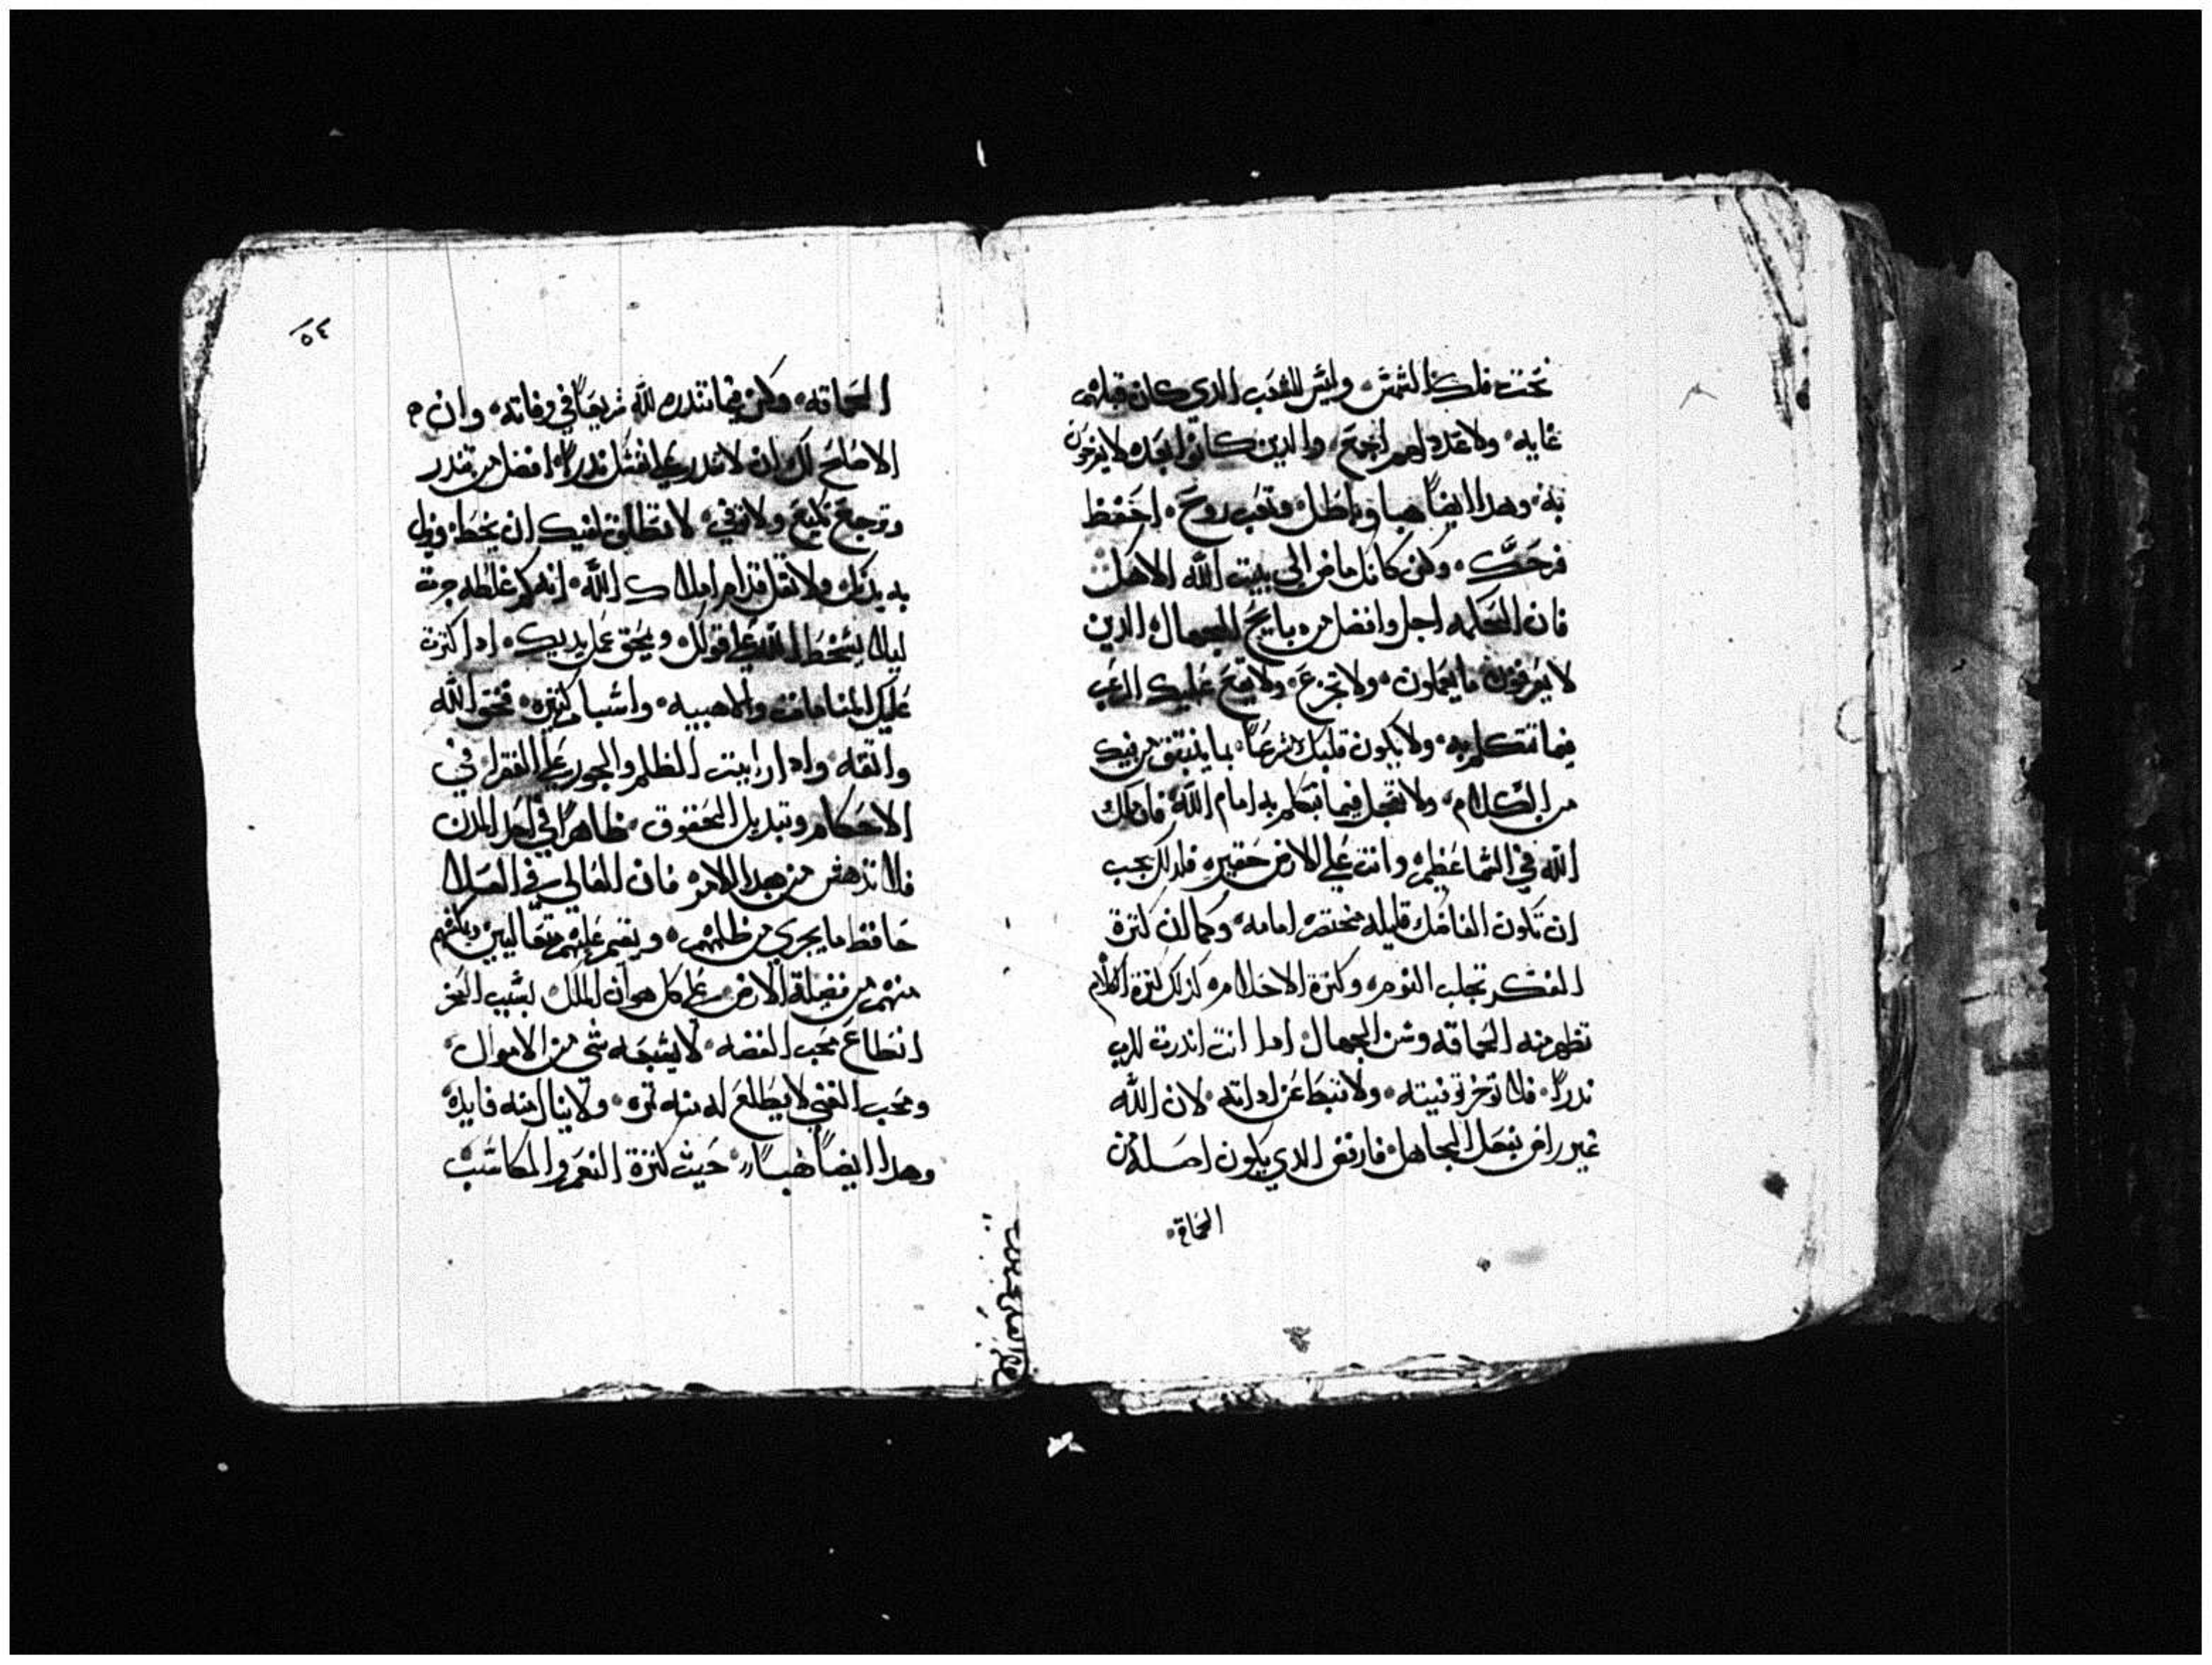 تحت فلك الشمش وليس للشعب الدي كان قبلهم
غايه ولا عدد لهم اجمع والدين كانوا بعده لا يفرحون
به وهدا ايضاً هبا وباطل وتعب روح احفظ
فرجك وكن كانك ماض الى بيت الله الاهك
فان الحكمه اجل وافضل من دبايح الجهال الدين
لا يعرفون ما يعملون ولا تجزع ولا يقع عليك الرعب
فيما تتكلم به ولا يكون قلبك مسرعاً بما ينبتق من فيك
من الكلام ولا تعجل فيما تتكلم به امام الله فان ملك
الله في السما عظيم وانت علي الارض حقير فلدلك يجب
ان تكون الفاضك قليله مختصره امامه وكما ان كترة
الفكر تجلب النوم وكترة الاحلام كدلك كترة الكلام
تظهر منه الحماقه وسن الجهال ادا انت اندرت للرب
ندراً فلا توخر توفيته ولا تبطا عن ادايه لان الله
غير راض بفعل الجاهل فارفض الدي يكون اصله من
الحماقه
٥٤
الحماقه وكن فيما تندره لله سريعاً في وفايه وان
الاصلح لك ان لا تندر علي نفسك ندراً افضل من تندر
وترجع تمنع ولا توفي لا تطلق لفيك ان يخطا ويزل
به بدنك ولا تقل قدام املاك الله انه كم غلطه جرت
ليلا يسخط الله على قولك ويمحق عمل يديك ادا كترت
عليك المنامات والاهبيه واشيا كتيره فخف الله
واتقه وادا رايت الظلم والجور علي الفقرا في
الاحكام وتبديل الحقوق ظاهراً في احد المدن
فلا تدهش من هدا الامر فان للعالي في العلا
حافظ ما يجري من ظلمهم ونقم عليهم متعاليين وباكتر
منهم من فضلة الارض علي كل هو ان الملك بسبب الحقر
انطاع محب الفضه لا يشبعه شي من الاموال
ومحب الغني لا يطلع له منه تمره ولا ينال منه فايده
وهدا ايضاً هباً حيث كترة النعم والمكاسب